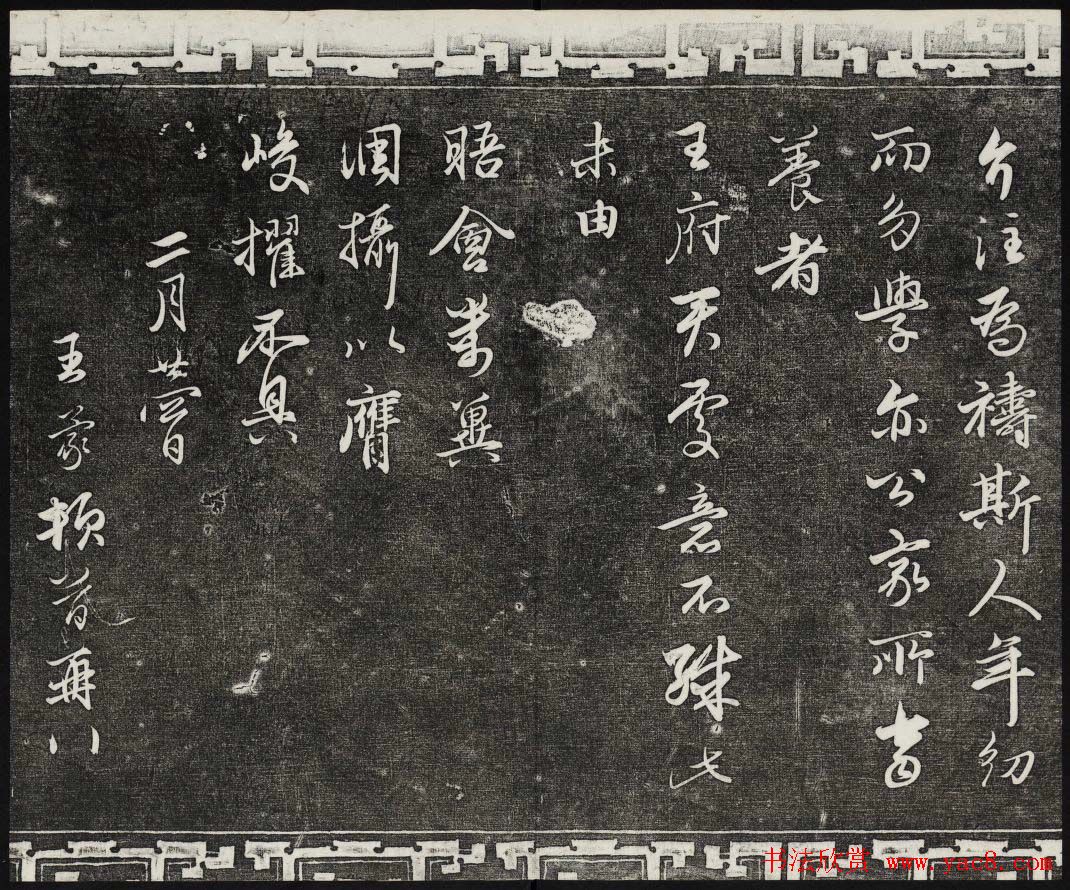 介注為禱斯人年幼
而學亦公家所當
養者
王府天處意不殊此
未由
晤會萬冀
調攝以膺
峻擢不具
二月廿四日
王蒙頓首再拜
书法欣赏 www.yac8.com